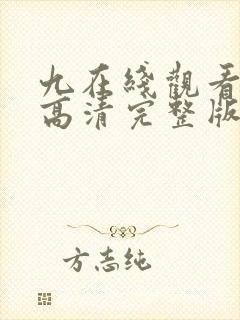 九在綫觀看
高清完整版
方志纯